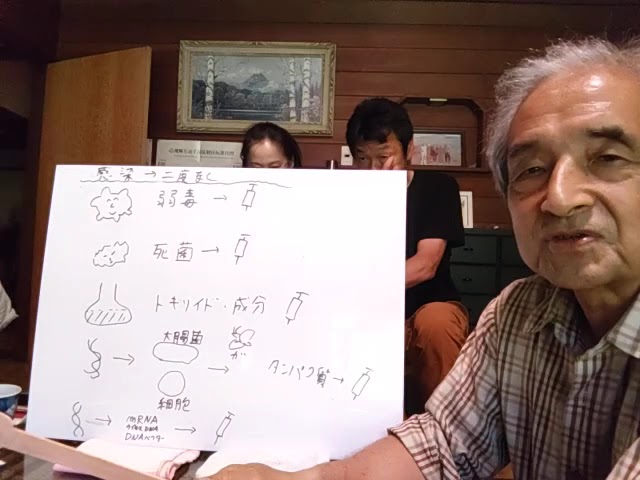 感染→二度なし
弱毒→
死菌→
トキソイド・成分
大腸菌
→ → タンパク質→
細胞
→ mRNA →
DNAベクター